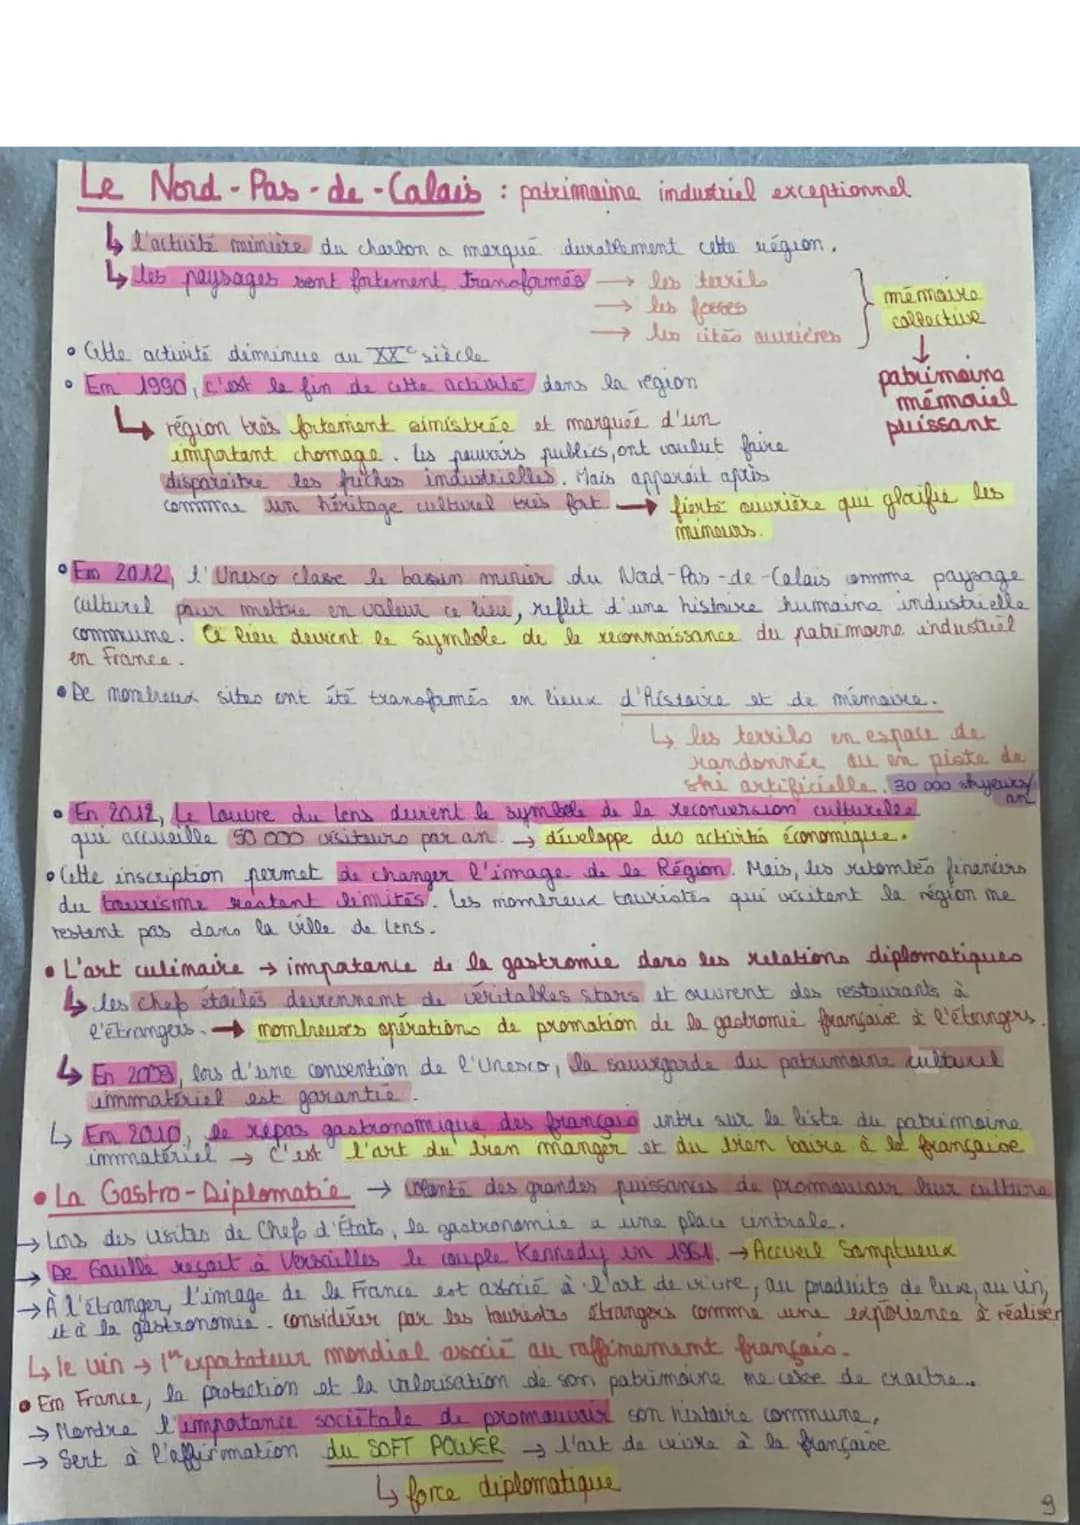 Le Nord-Pas-de-Calais : patrimoine industriel exceptionnel
↳ l'activité minière du charbon a marqué durablement cette région.
↳ les paysages sont fortement transformés → les terrils
→ les fosses
→ les cités ouvrières
mémoire
collective
↓
patrimoine
mémoriel
puissant
• Cette activité diminue au XXe siècle
• En 1990, c'est la fin de cette activité dans la région
↳ région très fortement sinistrée et marquée d'un
important chomage. Les pouvoirs publics, ont voulut faire
disparaitre les friches industrielles. Mais apparait après
comme un héritage culturel très fort. → fierté ouvrière qui glorifie les
mineurs.
• En 2012, l'Unesco classe le bassin minier du Nord-Pas-de-Calais comme paysage
culturel pour mettre en valeur ce lieu, reflet d'une histoire humaine industrielle
commune. Ce lieu devient le symbole de la reconnaissance du patrimoine industriel
en France.
• De nombreux sites ont été transformés en lieux d'histoire et de mémoire.
↳ les terrils en espace de
randonnée ou en piste de
ski artificielle. 30 000 skyeurs/
an
• En 2012, Le Louvre du Lens devient le symbole de la reconversion culturelle
qui accueille 50 000 visiteurs par an. → développe des activités économique.
• Cette inscription permet de changer l'image de la Région. Mais, les retombés financiers
du tourisme restent limités. Les nombreux touristes qui visitent la région ne
restent pas dans la ville de Lens.
• L'art culinaire → importance de la gastromie dans les relations diplomatiques
↳ les chefs étoilés deviennent de véritables stars et ouvrent des restaurants à
l'étrangers. → nombreuses opérations de promotion de la gastromie française à l'étrangers.
↳ En 2003, lors d'une convention de l'Unesco, la sauvegarde du patrimoine culturel
immatériel est garantie.
↳ En 2010, le repas gastronomique des français entre sur la liste du patrimoine
immatériel → c'est l'art du bien manger et du bien boire à la française
• La Gastro-Diplomatie → volonté des grandes puissances de promouvoir leur culture
→ Lors des visites de Chefs d'États, la gastronomie a une place centrale.
→ De Gaulle reçoit à Versailles le couple Kennedy en 1961. → Accueil Somptueux
→ À l'étranger, l'image de la France est associé à l'art de vivre, au produits de luxe, au vin,
et à la gastronomie. considérer par les touristes étrangers comme une expérience à réaliser
↳ le vin → 1er exportateur mondial associé au raffinement français.
• En France, la protection et la valorisation de son patrimoine ne cesse de croitre..
→ Montre l'importance sociétale de promouvoir son histoire commune,
→ Sert à l'affirmation du SOFT POWER → l'art de vivre à la française
↳ force diplomatique
9